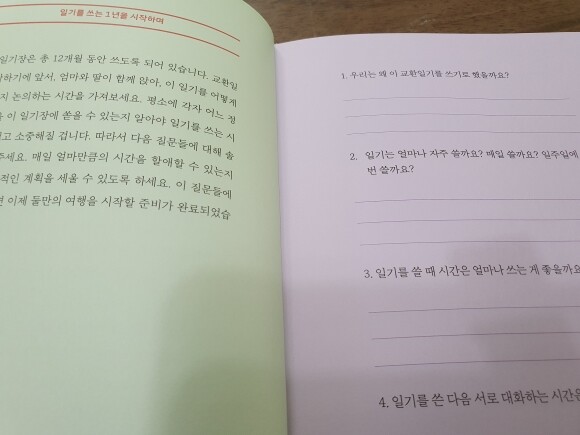 일기를 쓰는 1년을 시작하며
일기장은 총 12개월 동안 쓰도록 되어 있습니다. 교환일
하기에 앞서, 엄마와 딸이 함께 앉아, 이 일기를 어떻게
지 논의하는 시간을 가져보세요. 평소에 각자 어느 정
이 일기장에 쏟을 수 있는지 알아야 일기를 쓰는 시
고 소중해질 겁니다. 따라서 다음 질문들에 대해 솔
주세요. 매일 얼마만큼의 시간을 할애할 수 있는지
적인 계획을 세울 수 있도록 하세요. 이 질문들에
면 이제 둘만의 여행을 시작할 준비가 완료되었습
1. 우리는 왜 이 교환일기를 쓰기로 했을까요?
2. 일기는 얼마나 자주 쓸까요? 매일 쓸까요? 일주일에
번 쓸까요?
3. 일기를 쓸 때 시간은 얼마나 쓰는 게 좋을까요
4. 일기를 쓴 다음 서로 대화하는 시간을